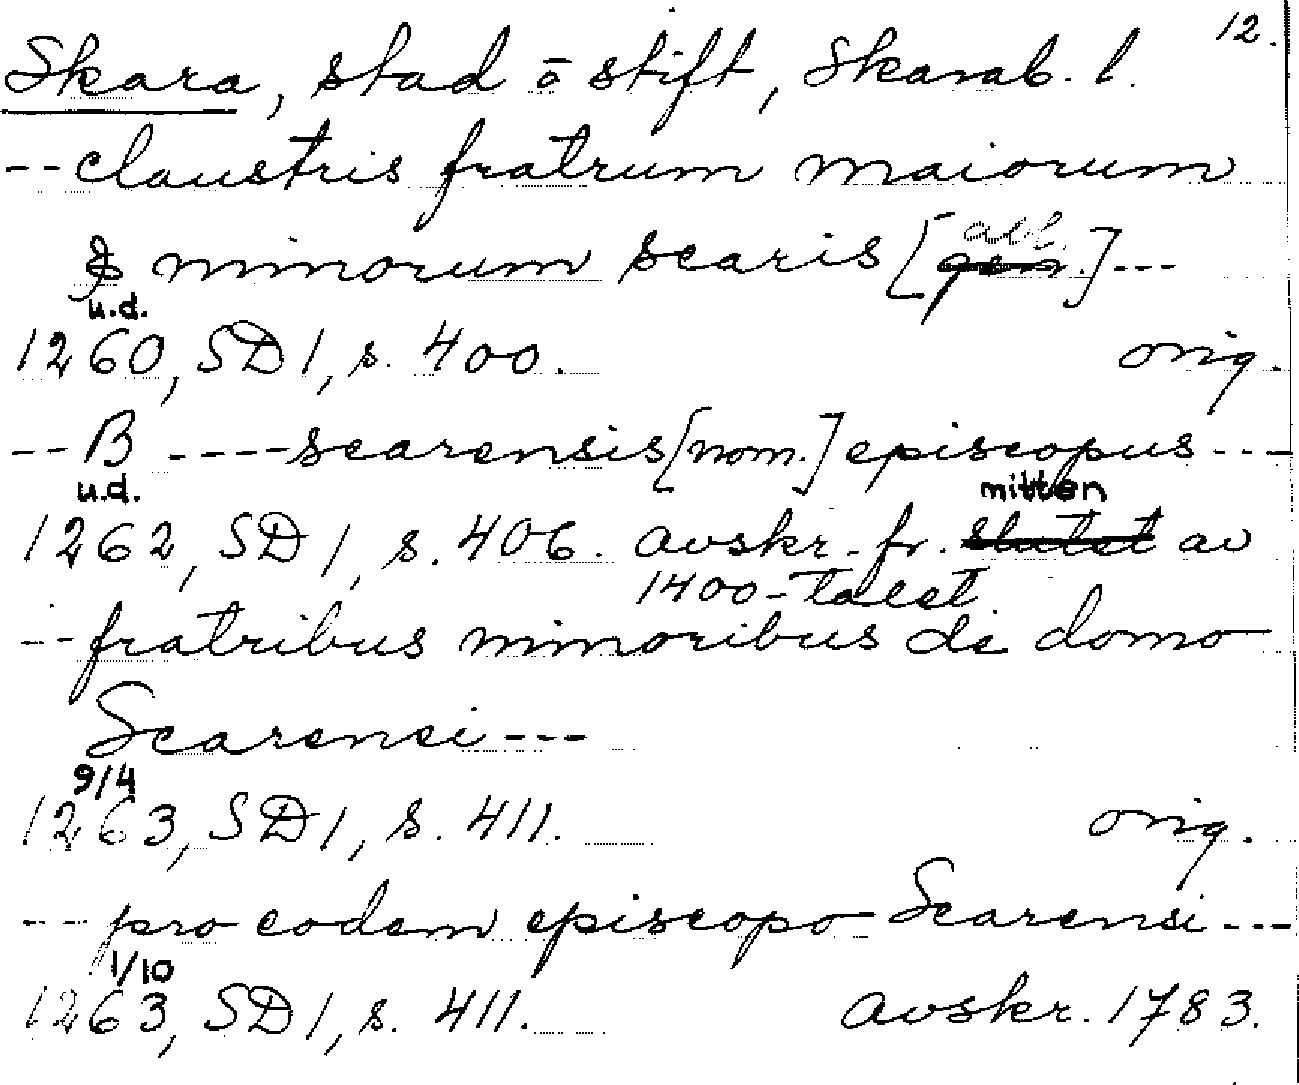 12.
Skara, stad o stift, Skarab. l.
-- claustris fratrum maiorum
& minorum scaris [gen. abl.] ---
u.d.
1260, SD 1, s. 400. orig.
-- B ---- scarensis [nom.] episcopus ---
u.d. mitten
1262, SD 1, s. 406. avskr. fr. slutet av
1400-talet.
-- fratribus minoribus de domo
Scarensi ---
9/4
1263, SD 1, s. 411. orig.
-- pro eodem episcopo Scarensi ---
1/10
1263, SD 1, s. 411. avskr. 1783.